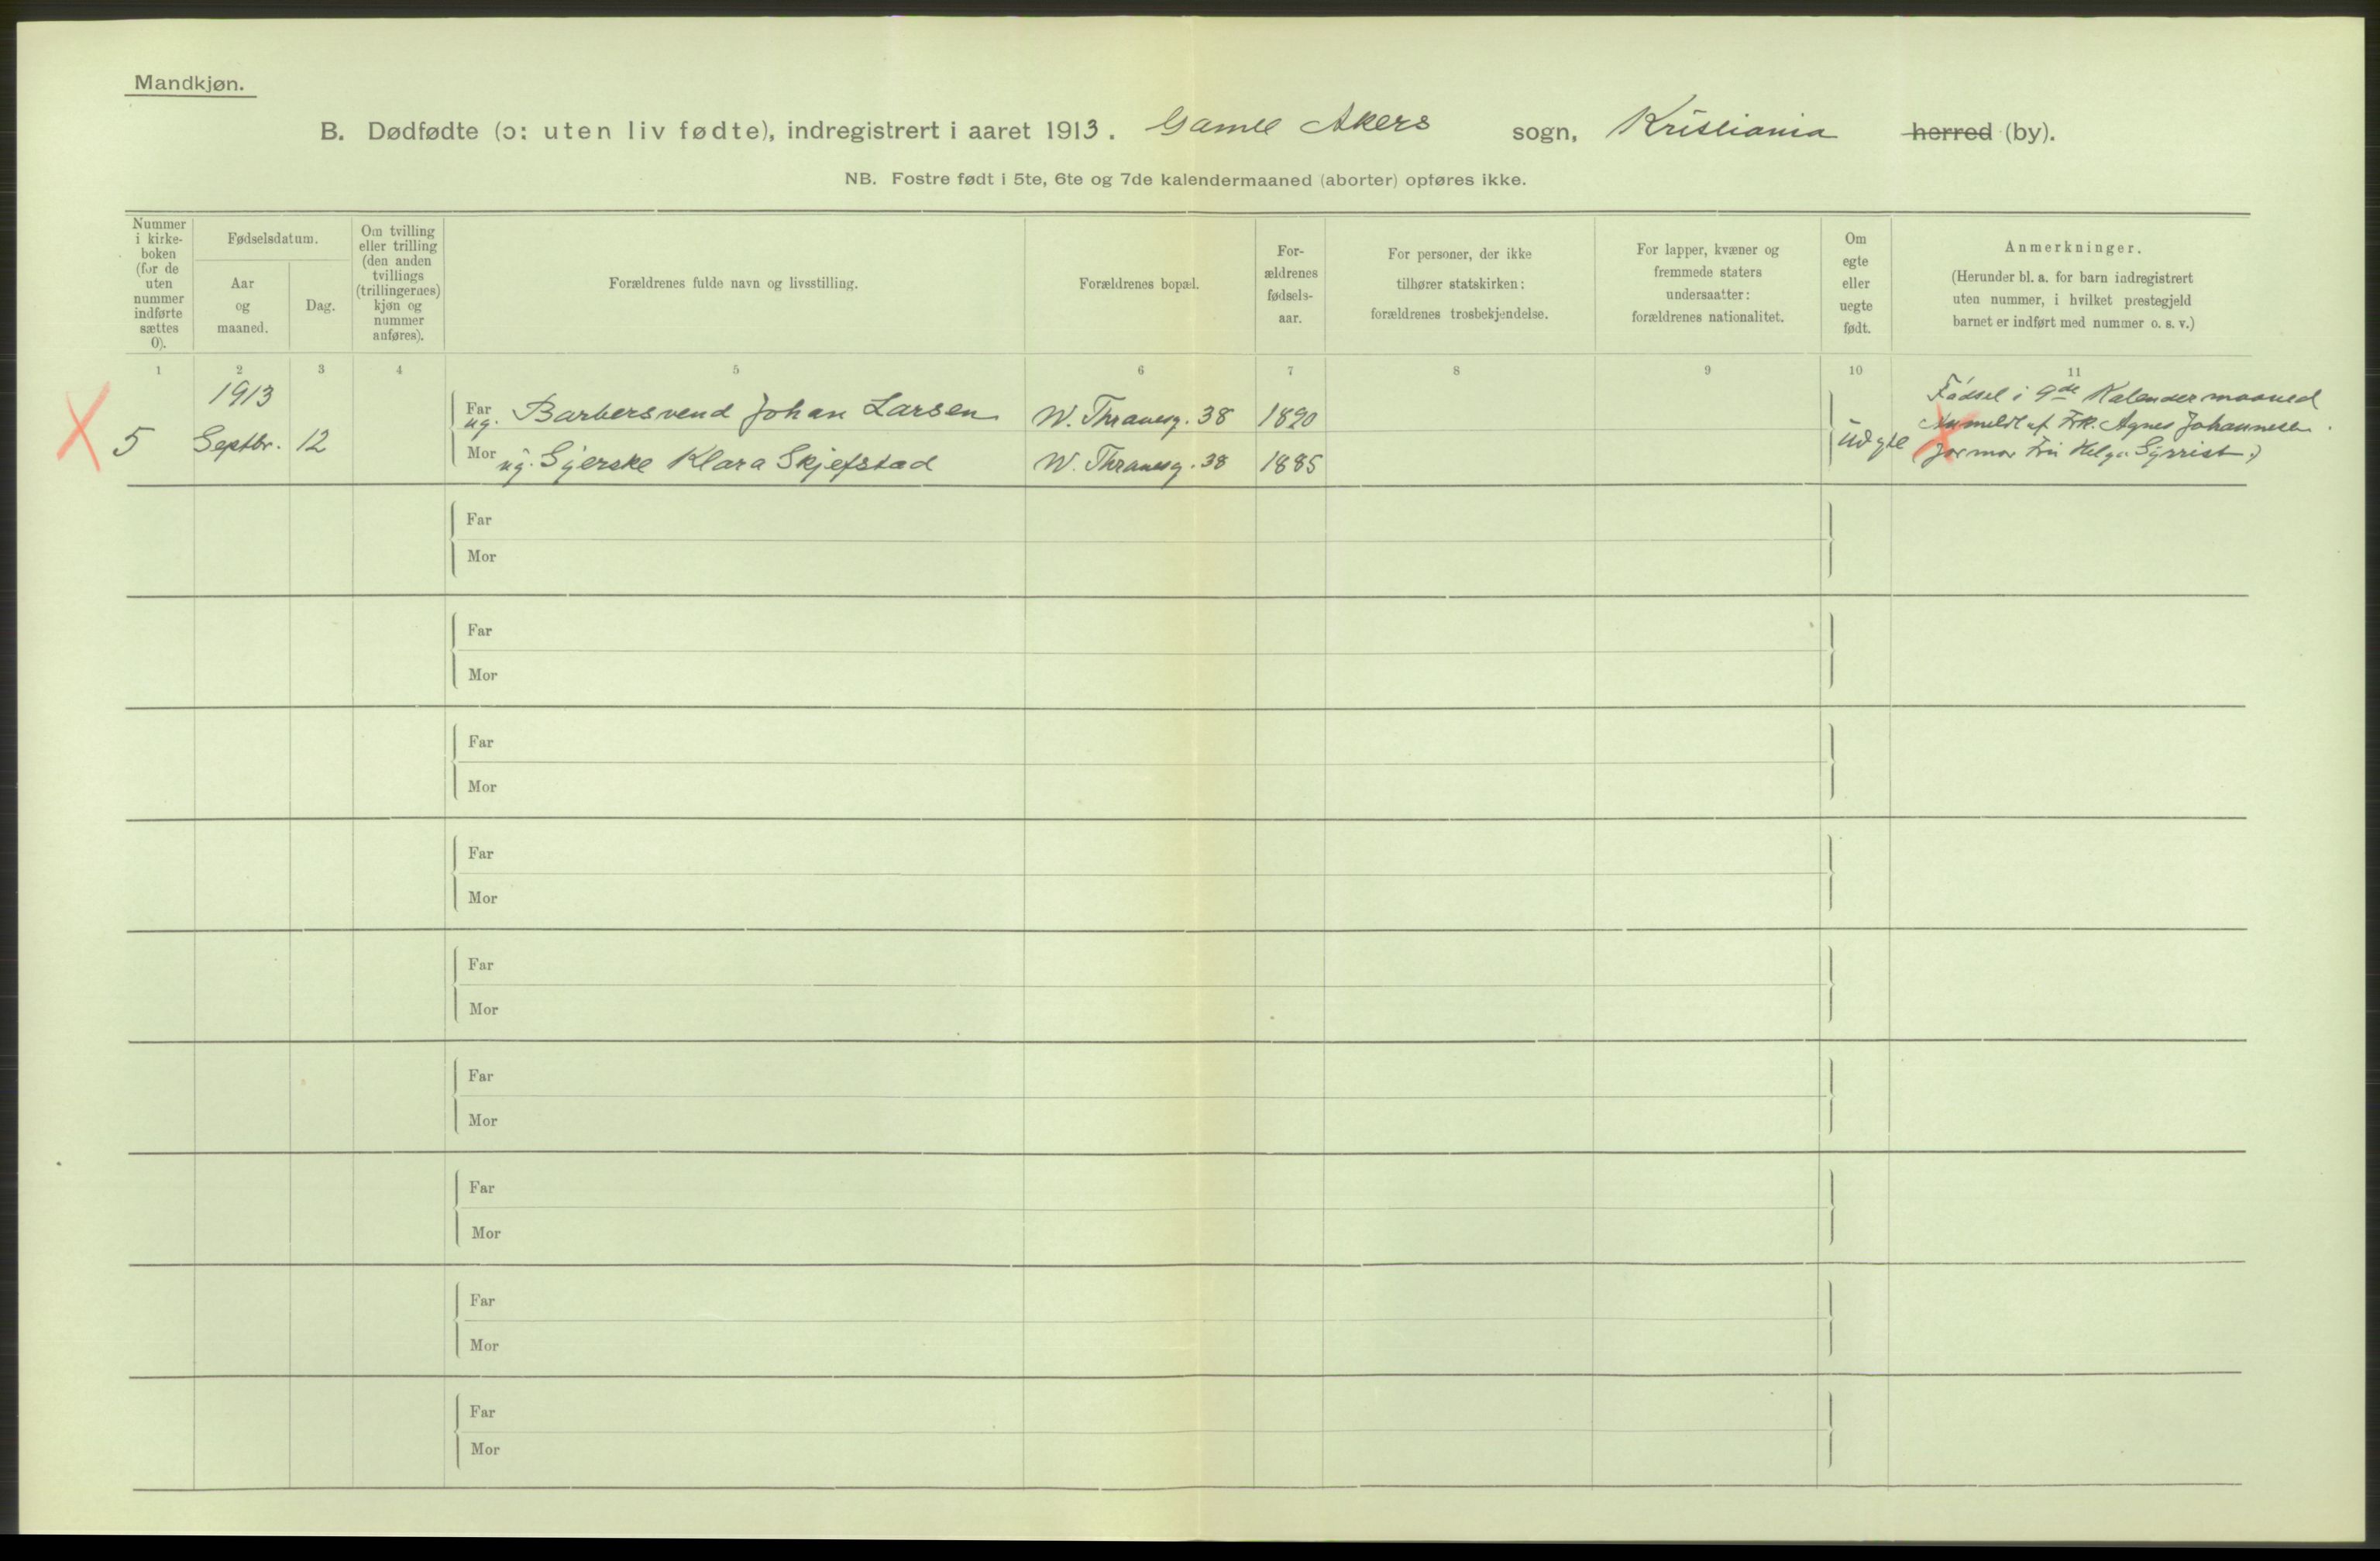 Mandkjøn.
B. Dødfødte (ɔ: uten liv fødte), indregistrert i aaret 1913. Gamle Akers sogn, Kristiania herred (by).
NB. Fostre født i 5te, 6te og 7de kalendermaaned (aborter) opføres ikke.
Nummer
i kirke-
boken
(for de
uten
nummer
indførte
sættes
0).
Fødselsdatum.
Aar
og
maaned.
Dag.
Om tvilling
eller trilling
(den anden
tvillings
(trillingernes)
kjøn og
nummer
anføres).
Forældrenes fulde navn og livsstilling.
Forældrenes bopæl.
For-
ældrenes
fødsels-
aar.
For personer, der ikke
tilhører statskirken:
forældrenes trosbekjendelse.
For lapper, kvæner og
fremmede staters
undersaatter:
forældrenes nationalitet.
Om
egte
eller
uegte
født.
Anmerkninger.
(Herunder bl. a. for barn indregistrert
uten nummer, i hvilket prestegjeld
barnet er indført med nummer o. s. v.)
1 2 3 4 5 6 7 8 9 10 11
5
1913
Septbr. 12
Far ug. Barbersvend Johan Larsen W. Thranesg. 38 1890
Mor ug. Syerske Klara Skjefstad W. Thranesg. 38 1885
Fødsel i 9de Kalendermaaned
Anmeldt af Frk. Agnes Johannesen.
(Jormor Fru Helga
Far
Mor
Far
Mor
Far
Mor
Far
Mor
Far
Mor
Far
Mor
Far
Mor
Far
Mor
Far
Mor